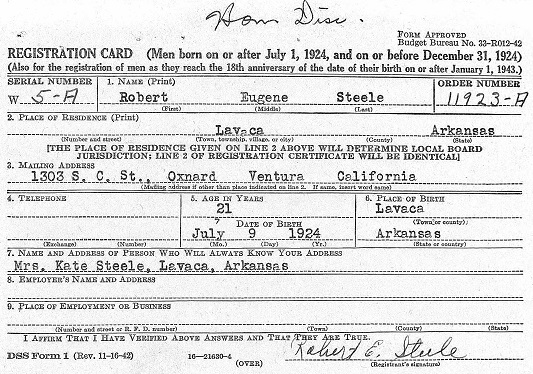 Hon Disc.
FORM APPROVED
Budget Bureau No. 33-R012-42
REGISTRATION CARD (Men born on or after July 1, 1924, and on or before December 31, 1924)
(Also for the registration of men as they reach the 18th anniversary of the date of their birth on or after January 1, 1943.)
SERIAL NUMBER 1. NAME (Print) ORDER NUMBER
W 5-A Robert Eugene Steele 11923-A
(First) (Middle) (Last)
2. PLACE OF RESIDENCE (Print)
Lavaca Arkansas
(Number and street) (Town, township, village, or city) (County) (State)
[THE PLACE OF RESIDENCE GIVEN ON LINE 2 ABOVE WILL DETERMINE LOCAL BOARD
JURISDICTION; LINE 2 OF REGISTRATION CERTIFICATE WILL BE IDENTICAL]
3. MAILING ADDRESS
1303 S. C. St., Oxnard Ventura California
(Mailing address if other than place indicated on line 2. If same, insert word same)
4. TELEPHONE 5. AGE IN YEARS 6. PLACE OF BIRTH
21 Lavaca
DATE OF BIRTH (Town or county)
July 9 1924 Arkansas
(Exchange) (Number) (Mo.) (Day) (Yr.) (State or country)
7. NAME AND ADDRESS OF PERSON WHO WILL ALWAYS KNOW YOUR ADDRESS
Mrs. Kate Steele, Lavaca, Arkansas
8. EMPLOYER'S NAME AND ADDRESS
9. PLACE OF EMPLOYMENT OR BUSINESS
(Number and street or R. F. D. number) (Town) (County) (State)
I AFFIRM THAT I HAVE VERIFIED ABOVE ANSWERS AND THAT THEY ARE TRUE.
DSS Form 1 (Rev. 11-16-42) 16—21630-4 Robert E. Steele
(OVER) (Registrant's signature)